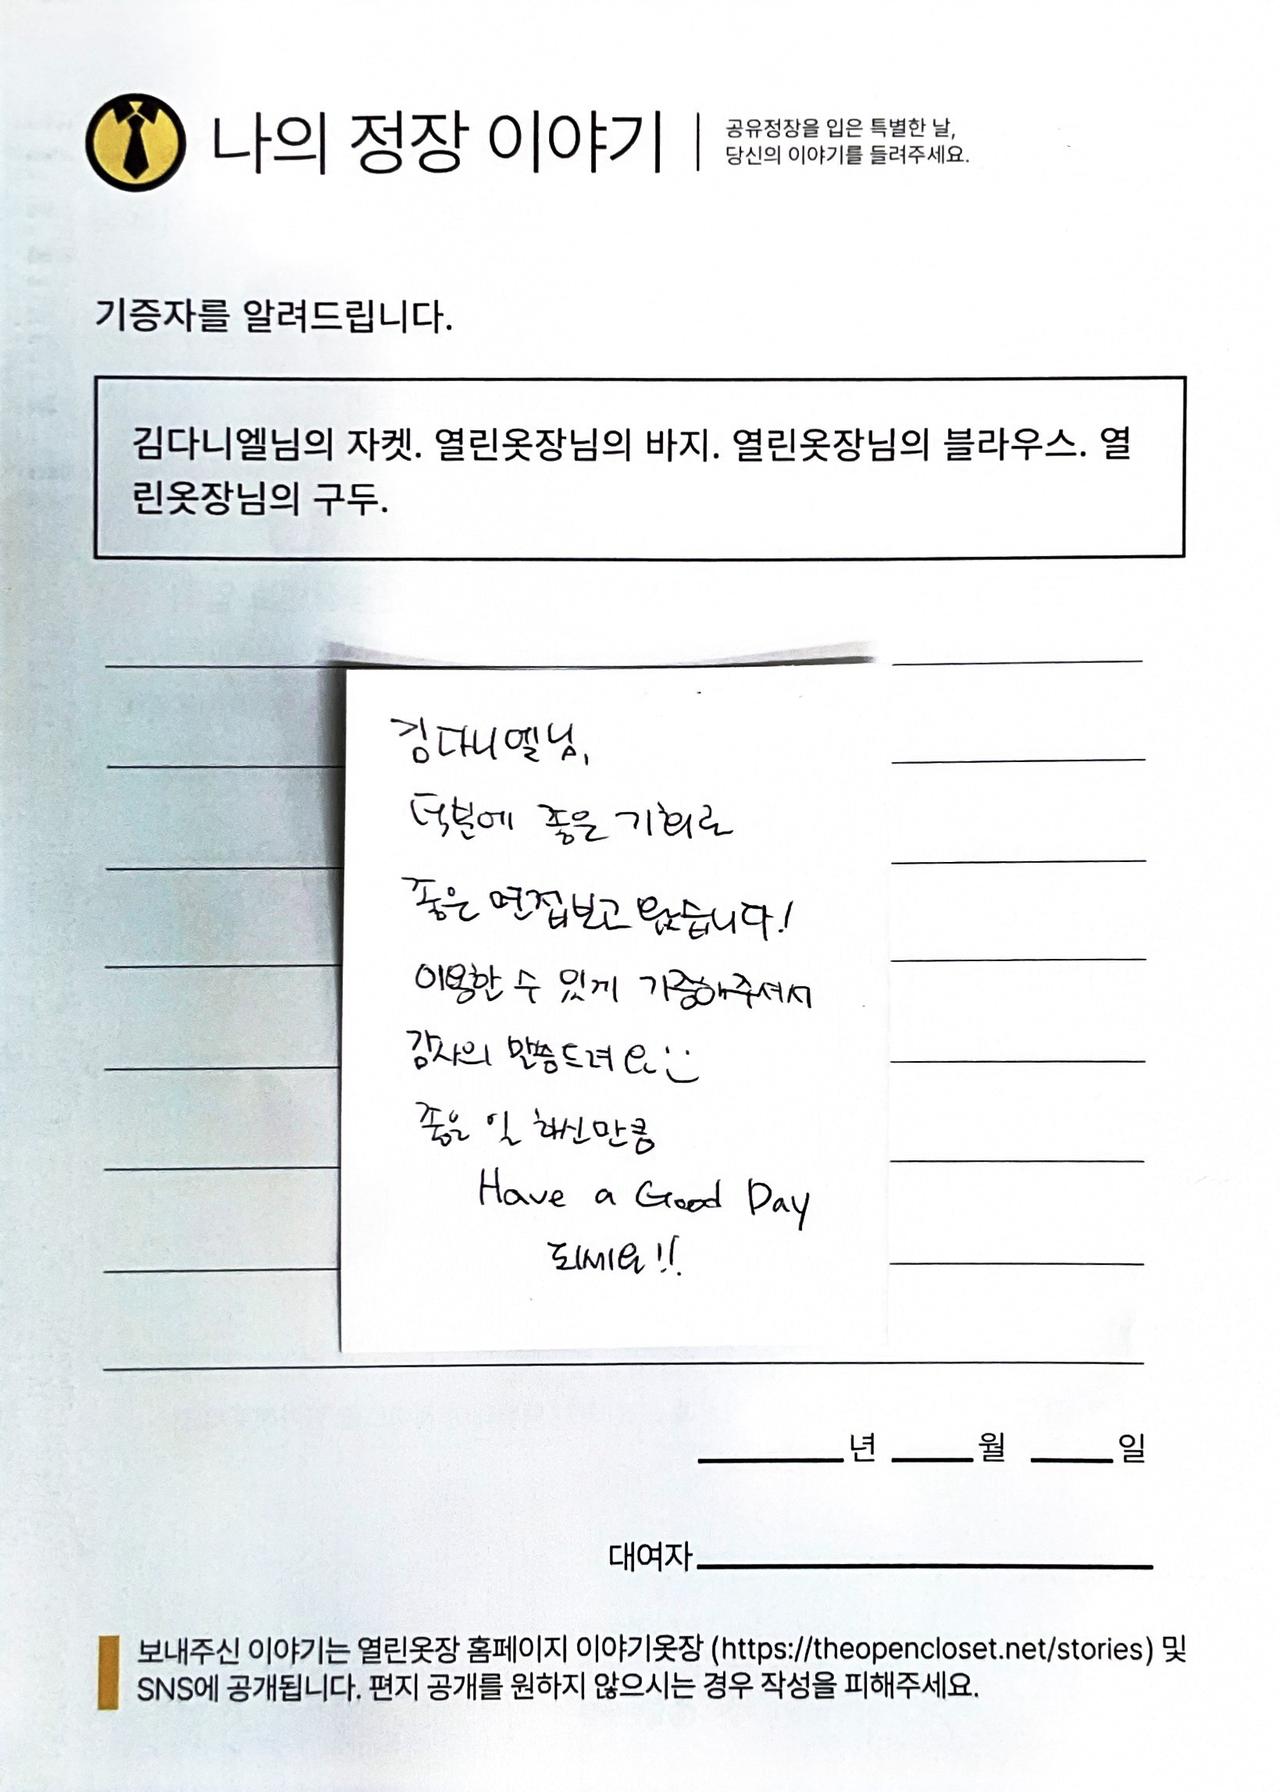 나의 정장 이야기
공유정장을 입은 특별한 날,
당신의 이야기를 들려주세요.
기증자를 알려드립니다.
김다니엘님의 자켓. 열린옷장님의 바지. 열린옷장님의 블라우스. 열
린옷장님의 구두.
김다니엘님,
덕분에 좋은 기회로
좋은 면접보고 왔습니다!
이용할 수 있게 기증해주셔서
감사의 말씀드려요:)
좋은 일 하신만큼
Have a Good Day
되세요!!
년 월 일
대여자
보내주신 이야기는 열린옷장 홈페이지 이야기옷장 (https://theopencloset.net/stories) 및
SNS에 공개됩니다. 편지 공개를 원하지 않으시는 경우 작성을 피해주세요.